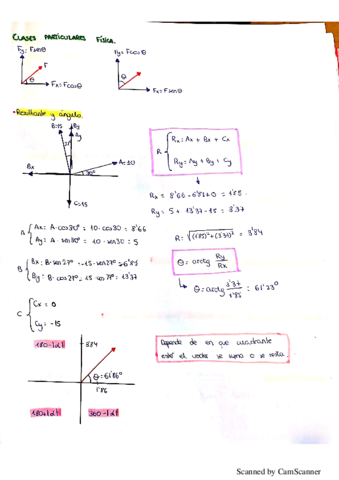 CLASES PARTICULARES FÍSICA.
Fy = Fsenθ
Fy = Fcosθ
F
θ
θ
Fx = Fcosθ
Fx = Fsenθ
• Resultante y ángulo.
B=15
By
Ay
27°
Bx
A=10
30°
C=15
R { Rx = Ax + Bx + Cx
Ry = Ay + By + Cy
Rx = 8'66 - 6'81 + 0 = 1'85.
Ry = 5 + 13'37 - 15 = 3'37
A { Ax = A · cos30° = 10 · cos30 = 8'66
Ay = A · sen30° = 10 · sen30 = 5
R = √((1'85)² + (3'37)²) = 3'84
B { Bx = B · sen27° = -15 · sen27° = -6'81
By = B · cos27° = 15 · cos27° = 13'37
θ = arctg Ry/Rx
θ = arctg 3'37/1'85 = 61'23°
C { Cx = 0
Cy = -15
180 - |α|
3'84
θ = 61'86°
1'86
180 + |α|
360 - |α|
Depende de en que cuadrante
esté el vector se suma o se resta.
Scanned by CamScanner